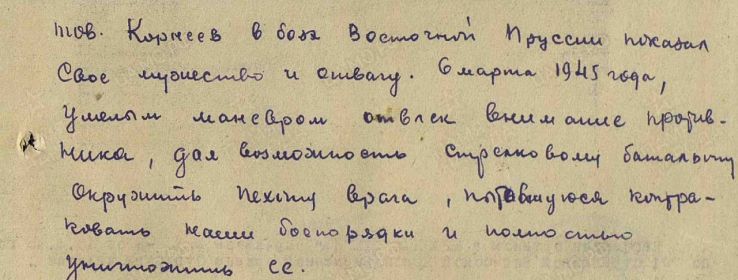 тов. Корнеев в боях Восточной Пруссии показал
свое мужество и отвагу. 6 марта 1945 года,
умелым маневром отвлек внимание против-
ника, дал возможность стрелковому баталъону
окружить пехоту врага, пытавшуюся контра-
ковать наши боепорядки и полностью
уничтожить ее.